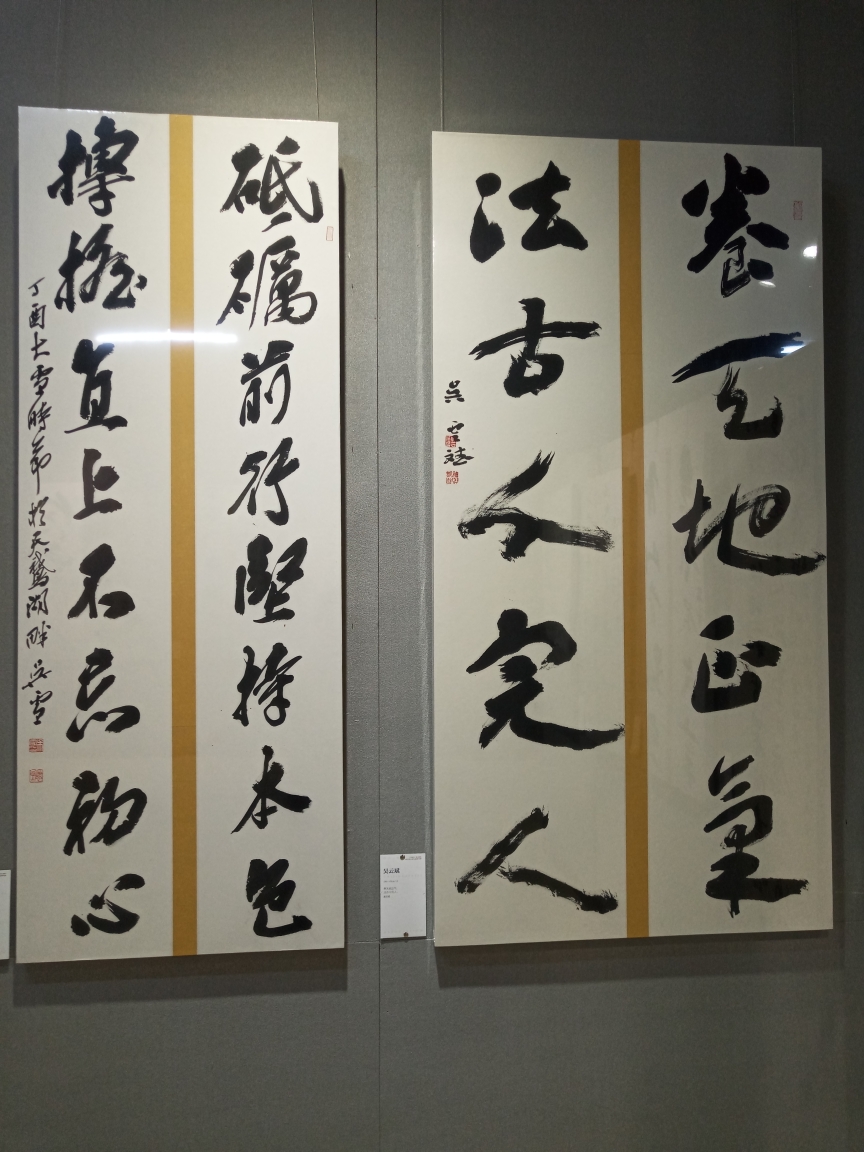 砥礪前行堅持本色
摶搖直上不忘初心
丁酉大雪時節於天鵝湖畔吳雪
養天地正氣
法古今完人
吳雲斌
吴云斌